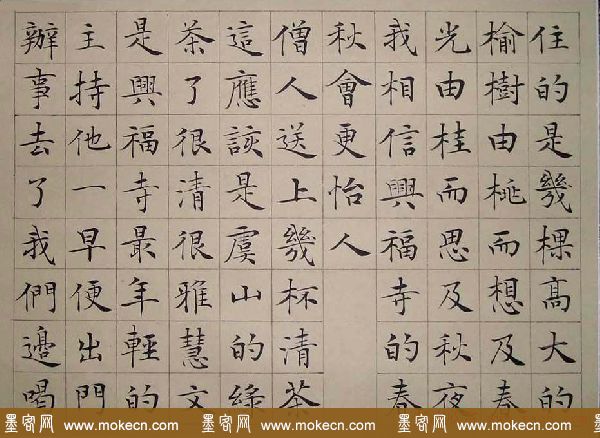 住的是幾棵高大的
榆樹由桃而想及春
光由桂而思及秋夜
我相信興福寺的春
秋會更怡人
僧人送上幾杯清茶
這應該是虞山的綠
茶了很清很雅慧文
是興福寺最年輕的
主持他一早便出門
辦事去了我們邊喝
墨客网 www.mokecn.com 墨客网 www.mokecn.com 墨客网 www.mokecn.com 墨客网 www.mokecn.com